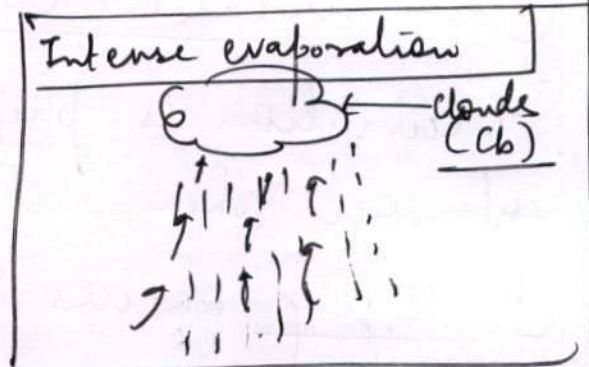 Intense evaporation
clouds
(Cb)